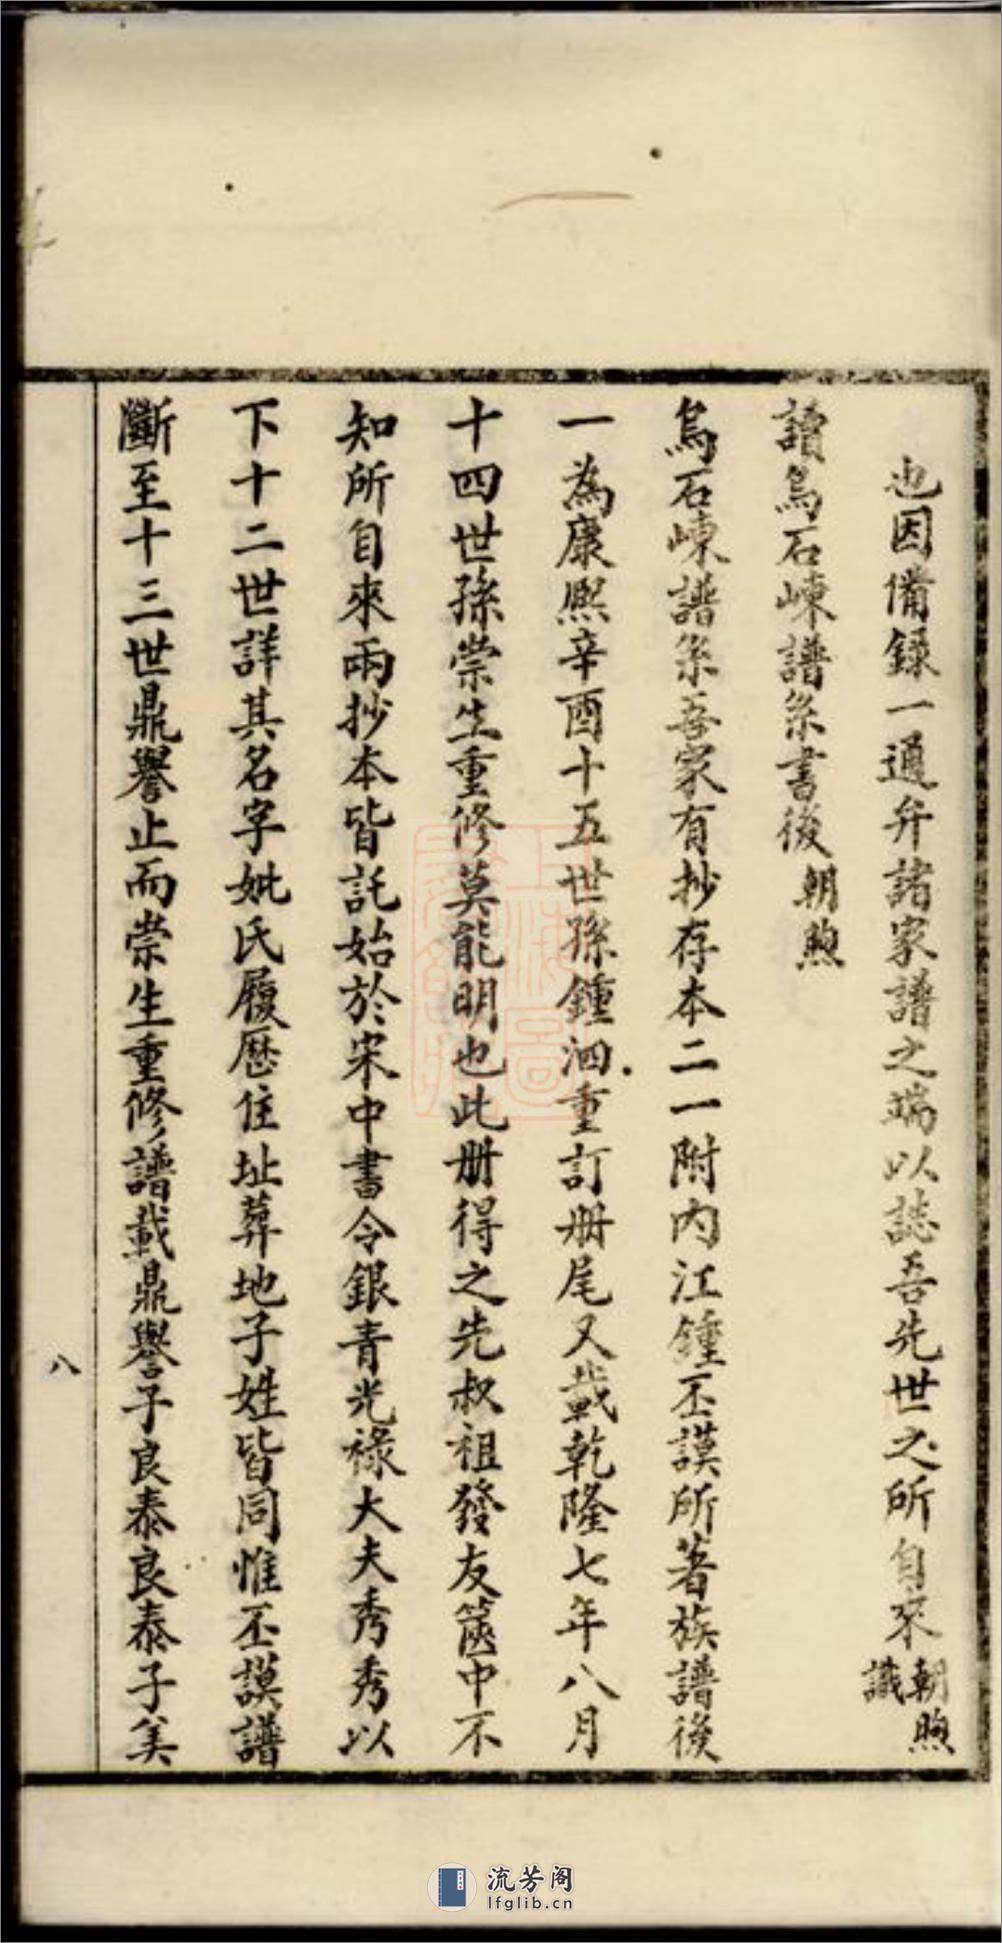 也因備錄一通弁諸家譜之端以誌吾先世之所自來朝煦識
讀烏石崠譜系書後朝煦
烏石崠譜系吾家有抄存本二一附內江鍾丕謨所著族譜後
一為康熙辛酉十五世孫鍾泗重訂册尾又載乾隆七年八月
十四世孫崇生重修莫能明也此册得之先叔祖發友篋中不
知所自來兩抄本皆託始於宋中書令銀青光祿大夫秀秀以
下十二世詳其名字妣氏履歷住址葬地子姓皆同惟丕謨譜
斷至十三世鼎譽止而崇生重修譜載鼎譽子良泰良泰子美
八
上海圖書館藏
流芳阁
lfglib.cn